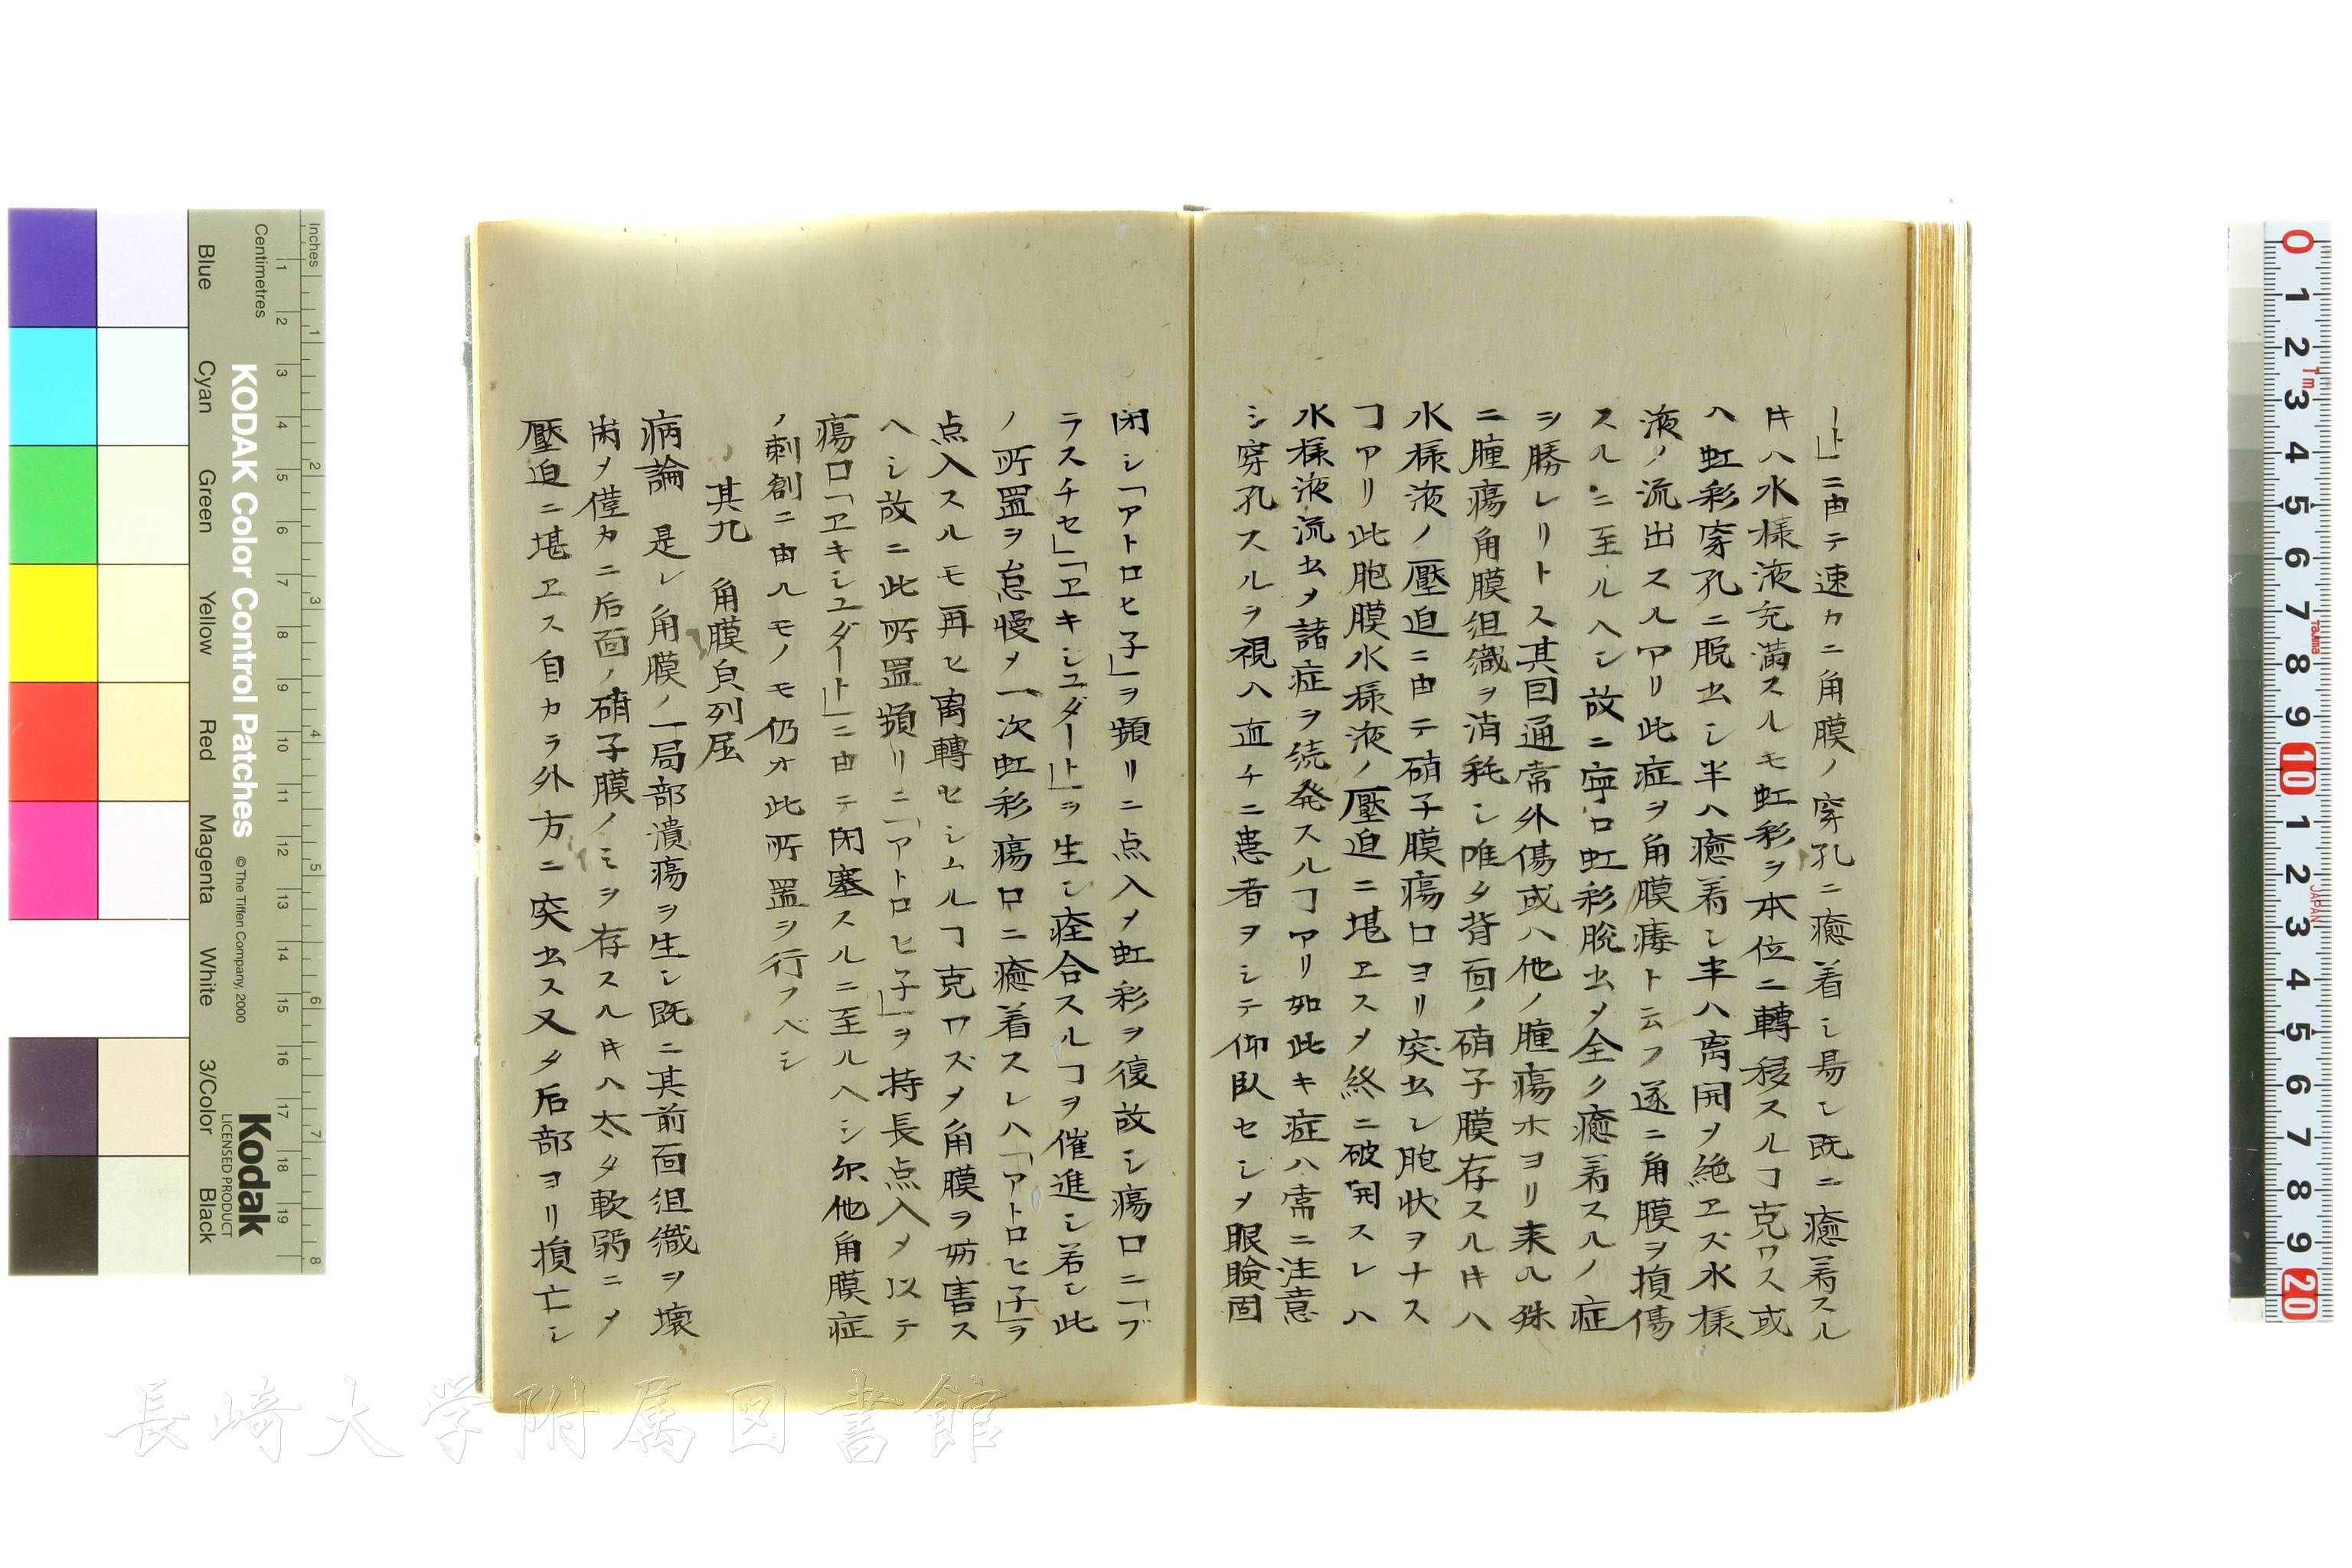 ート」ニ由テ速カニ角膜ノ穿孔ニ癒着シ易シ既ニ癒着スル
キハ水様液充満スルモ虹彩ヲ本位ニ轉移スルヿ克ワス或
ハ虹彩穿孔ニ脱出シ半ハ癒着シ半ハ离開ヲ絶ヱズ水様
液ノ流出スルヿアリ此症ヲ角膜瘻ト云フ遂ニ角膜ヲ損傷
スルニ至ルヘシ故ニ寧ロ虹彩脱出メ全ク癒着スルノ症
ヲ勝レリトス其囙通常外傷或ハ他ノ腫瘍ホヨリ来ル殊
ニ腫瘍角膜组織ヲ消耗シ唯タ背面ノ硝子膜存スルキハ
水様液ノ壓迫ニ由テ硝子膜瘍口ヨリ突出シ胞状ヲナス
ヿアリ此胞膜水様液ノ壓迫ニ堪ヱスメ終ニ破開スレハ
水様液流出メ諸症ヲ続発スルヿアリ如此キ症ハ常ニ注意
シ穿孔スルヲ視ハ直チニ患者ヲシテ仰臥セシメ眼瞼固
閉シ「アトロヒ子」ヲ頻リニ点入メ虹彩ヲ復故シ瘍口ニ「ブ
ラスチセ」「ヱキシユダート」ヲ生シ痊合スルヿヲ催進シ若シ此
ノ所置ヲ怠慢メ一次虹彩瘍口ニ癒着スレハ「アトロヒ子」ヲ
点入スルモ再ヒ离轉セシムルヿ克ワズメ角膜ヲ妨害ス
ヘシ故ニ此所置頻リニ「アトロヒ子」ヲ持長点入メ以テ
瘍口「ヱキシユダート」ニ由テ閉塞スルニ至ルヘシ尓他角膜症
ノ刺創ニ由ルモノモ仍オ此所置ヲ行フベシ
其九 角膜貟列屈
病論 是レ角膜ノ一局部潰瘍ヲ生シ既ニ其前面组織ヲ壊
崩メ僅カニ后面ノ硝子膜ノミヲ存スルキハ太タ軟弱ニメ
壓迫ニ堪ヱス自カラ外方ニ突出ス又タ后部ヨリ損亡シ
Inches
Centimetres
Blue
Cyan
Green
Yellow
Red
Magenta
White
3/Color
Black
KODAK Color Control Patches
© The Tiffen Company, 2000
Kodak
LICENSED PRODUCT
1 2 3 4 5 6 7 8 9 10 11 12 13 14 15 16 17 18 19
1 2 3 4 5 6 7 8
0 1 2 3 4 5 6 7 8 9 10 1 2 3 4 5 6 7 8 9 20
1m
TAJIMA
JAPAN
長崎大学附属図書館